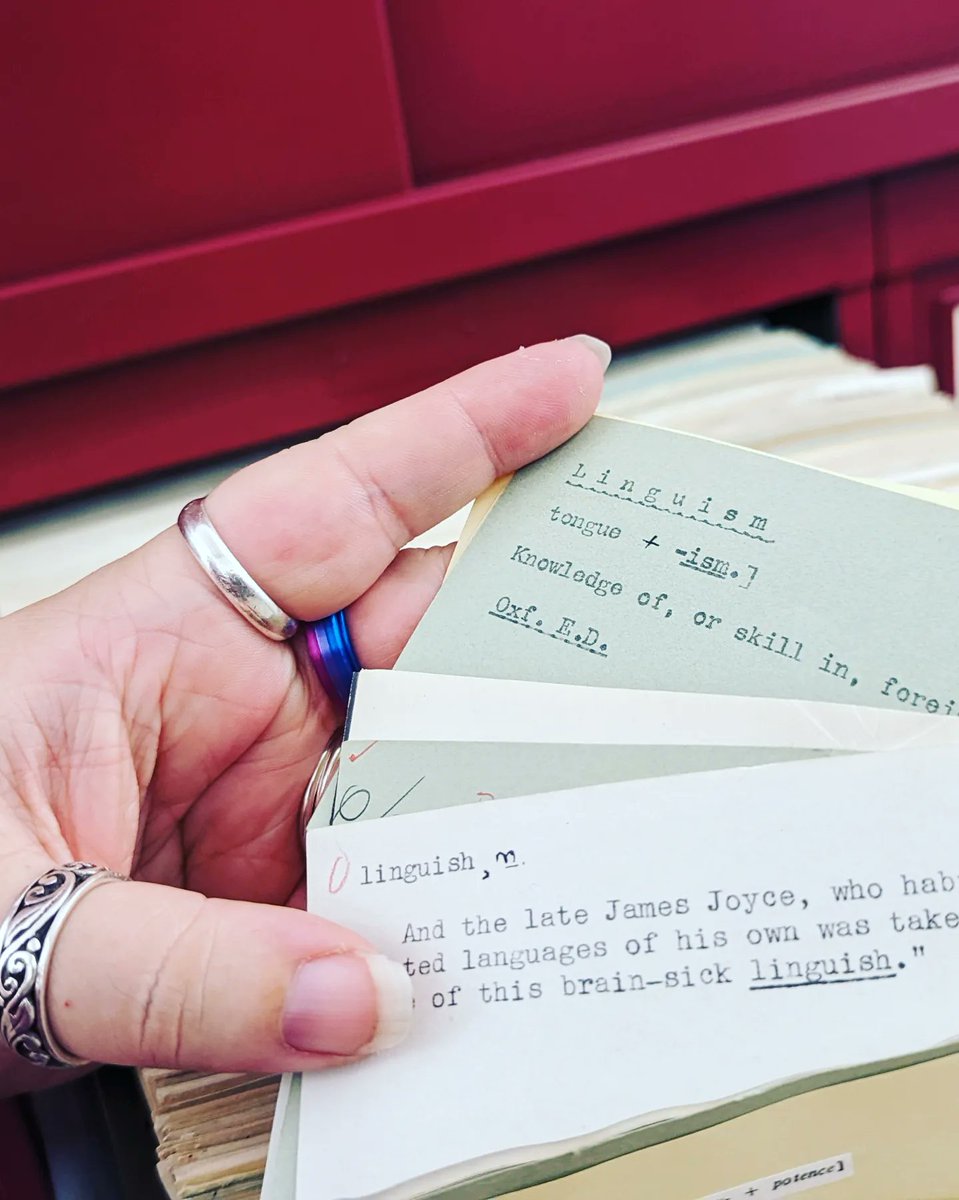 Linguism
tongue + -ism.]
Knowledge of, or skill in,
Oxf. E.D.
linguish, n.
And the late James Joyce, who
languages of his own was
of this brain-sick linguish."
+ potence]